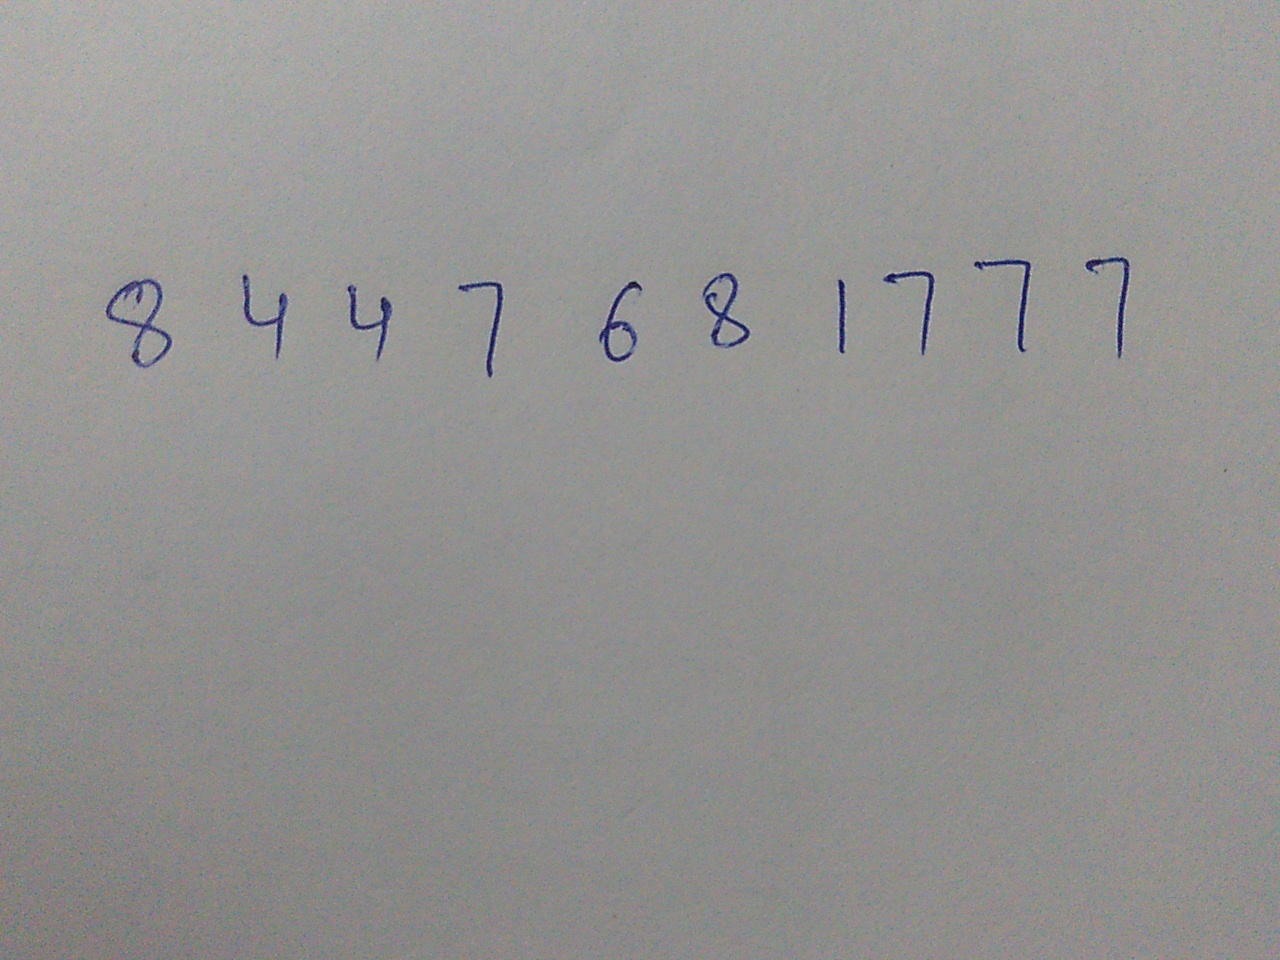 8 4 4 7 6 8 1 7 7 7